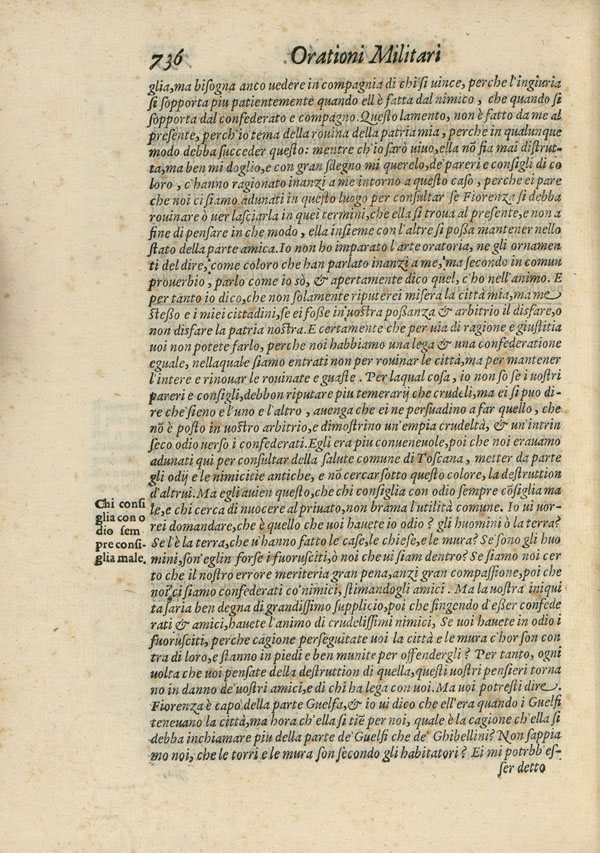 736 Orationi Militari
glia, ma bisogna anco uedere in compagnia di chi si uince, perche l'ingiuria
si sopporta piu patientemente quando ell'è fatta dal nimico, che quando si
sopporta dal confederato e compagno. Questo lamento, non è fatto da me al
presente, perch'io tema della rouina della patria mia, perche in qualunque
modo debba succeder questo: mentre ch'io sarò uiuo, ella nō fia mai distrut-
ta, ma ben mi doglio, e con gran sdegno mi querelo, de' pareri e consigli di co
loro, c'hanno ragionato inanzi a me intorno a questo caso, perche ei pare
che noi ci siamo adunati in questo luogo per consultar se Fiorenza si debba
rouinare ò uer lasciarla in quei termini, che ella si troua al presente, e non a
fine di pensare in che modo, ella insieme con l'altre si possa mantener nello
stato della parte amica. Io non ho imparato l'arte oratoria, ne gli ornamen
ti del dire, come coloro che han parlato inanzi a me, ma secondo in comun
prouerbio, parlo come io sò, & apertamente dico quel, c'ho nell'animo. E
per tanto io dico, che non solamente riputerei misera la città mia, ma me
stesso e i miei cittadini, se ei fosse in uostra possanza & arbitrio il disfare, o
non disfare la patria nostra. E certamente che per uia di ragione e giustitia
uoi non potete farlo, perche noi habbiamo una lega & una confederatione
eguale, nella quale siamo entrati non per rouinar le città, ma per mantener
l'intere e rinouar le rouinate e guaste. Per laqual cosa, io non so se i uostri
pareri e consigli, debbon riputare piu temerarij che crudeli, ma ei si puo di
re che sieno e l'uno e l'altro, auenga che ei ne persuadino a far quello, che
nō è posto in uostro arbitrio, e dimostrino un'empia crudeltà, & un'intrin
seco odio uerso i confederati. Egli era piu conueneuole, poi che noi erauamo
adunati qui per consultar della salute comune di Toscana, metter da parte
gli odij e le nimicitie antiche, e nō cercar sotto questo colore, la destruttion
d'altrui. Ma egli auien questo, che chi consiglia con odio sempre cōsiglia ma
le, e chi cerca di nuocere al priuato, non brama l'utilità comune. Io ui uor-
rei domandare, che è quello che uoi hauete in odio? gli huomini ò la terra?
Se l'è la terra, che u'hanno fatto le case, le chiese, e le mura? Se sono gli huo
mini, son'eglin forse i fuorusciti, ò noi che ui siam dentro? Se siamo noi cer
to che il nostro errore meriteria gran pena, anzi gran compassione, poi che
noi ci siamo confederati co' nimici, stimandogli amici. Ma la uostra iniqui
ta saria ben degna di grandissimo supplicio, poi che fingendo d'esser confede
rati & amici, hauete l'animo di crudelissimi nimici, Se uoi hauete in odio i
fuorusciti, perche cagione perseguitate uoi la città e le mura c'hor son con
tra di loro, e stanno in piedi e ben munite per offendergli? Per tanto, ogni
uolta che uoi pensate della destruttion di quella, questi uostri pensieri torna
no in danno de' uostri amici, e di chi ha lega con uoi. Ma uoi potresti dire
Fiorenza è capo della parte Guelfa, & io ui dico che ell'era quando i Guelfi
teneuano la città, ma hora ch'ella si tiē per noi, quale è la cagione ch'ella si
debba inchiamare piu della parte de' Guelfi che de' Ghibellini? Non sappia
mo noi, che le torri e le mura son secondo gli habitatori? Ei mi potrbb es-
ser detto
Chi consi
glia con o
dio sem
pre consi-
glia male.